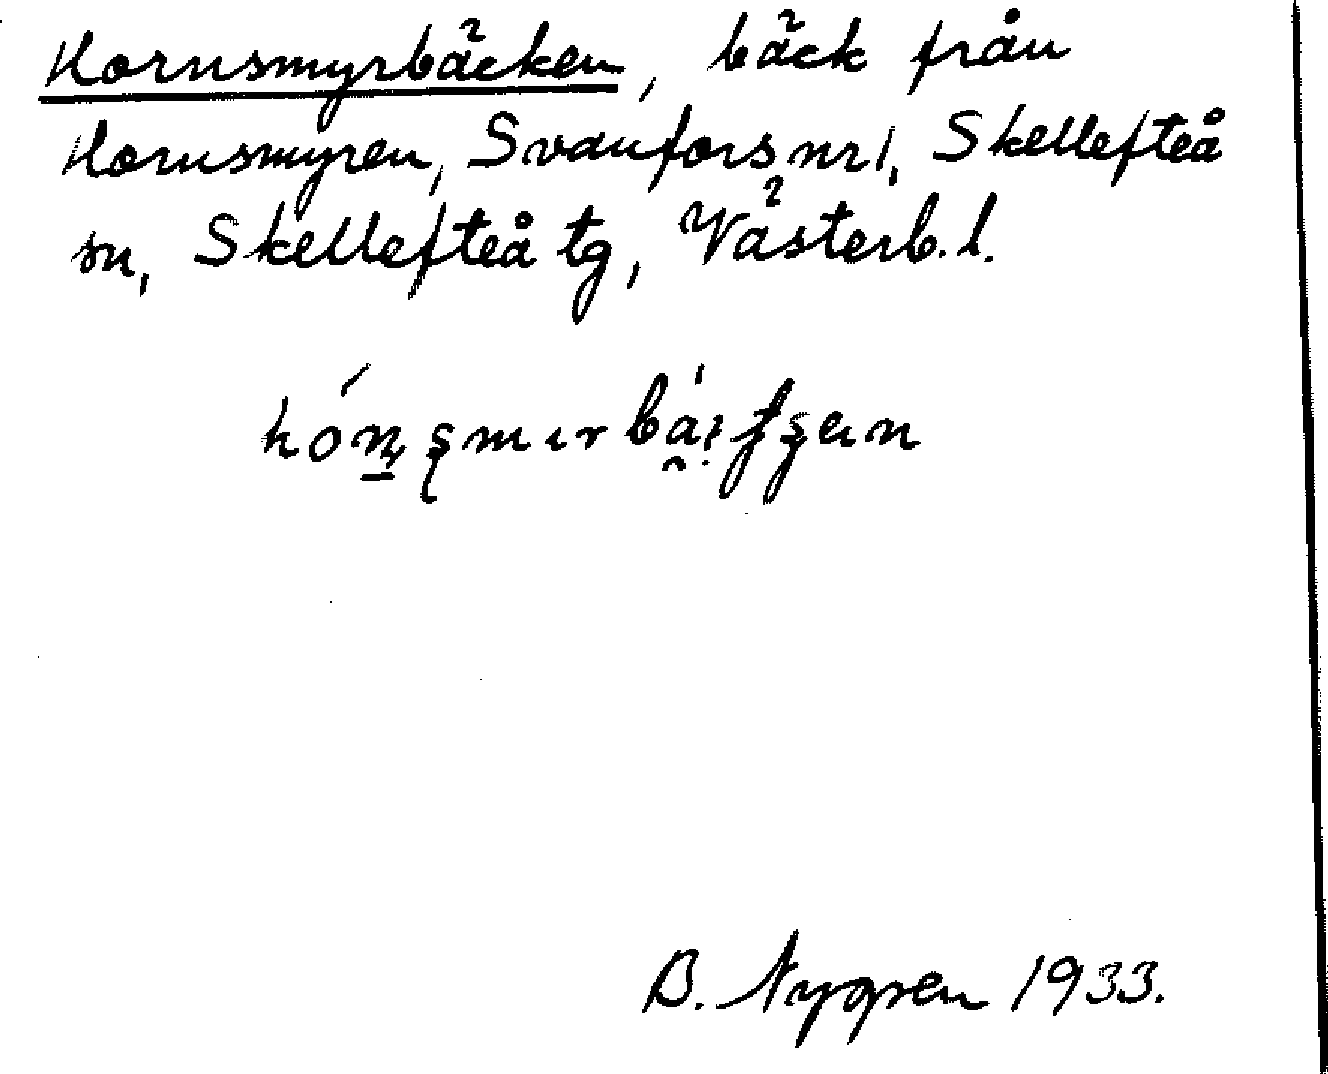 Kornsmyrbäcken, bäck från
Kornsmyren, Svanfors nr 1, Skellefteå
sn, Skellefteå tg, Västerb. l.
B. Nygren 1933.